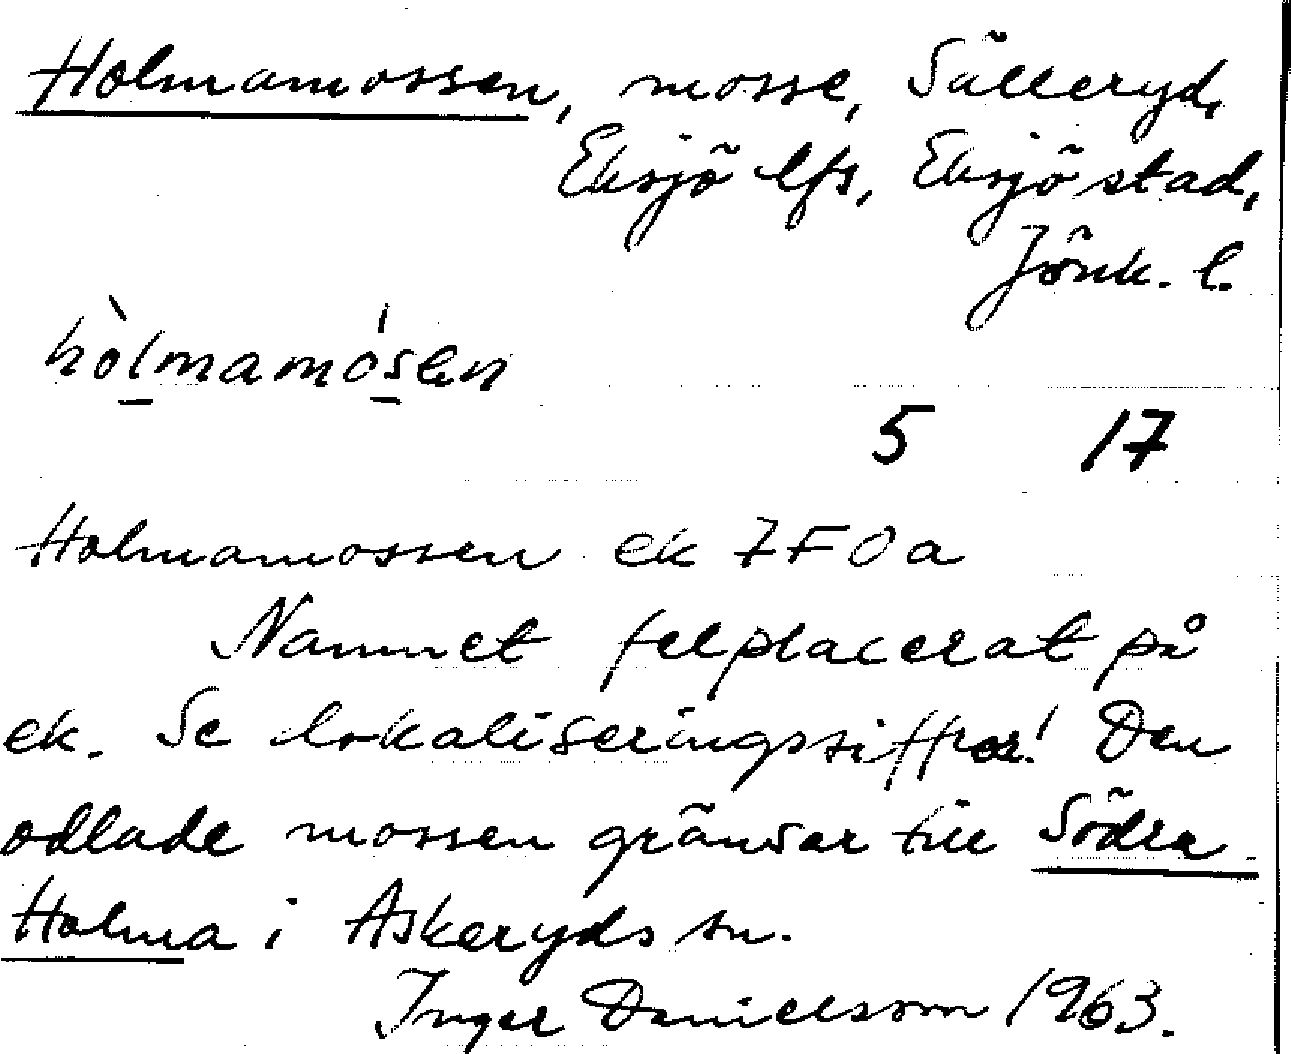 Holmamossen, mosse, Sälleryd,
Eksjö lfs, Eksjö stad,
Jönk. l.
hòlmamósen
5 17
Holmamossen ek 7F0a
Namnet felplacerat på
ek. Se lokaliseringssiffror! Den
odlade mossen gränsar till Södra
Holma i Askeryds sn.
Inger Danielsson 1963.